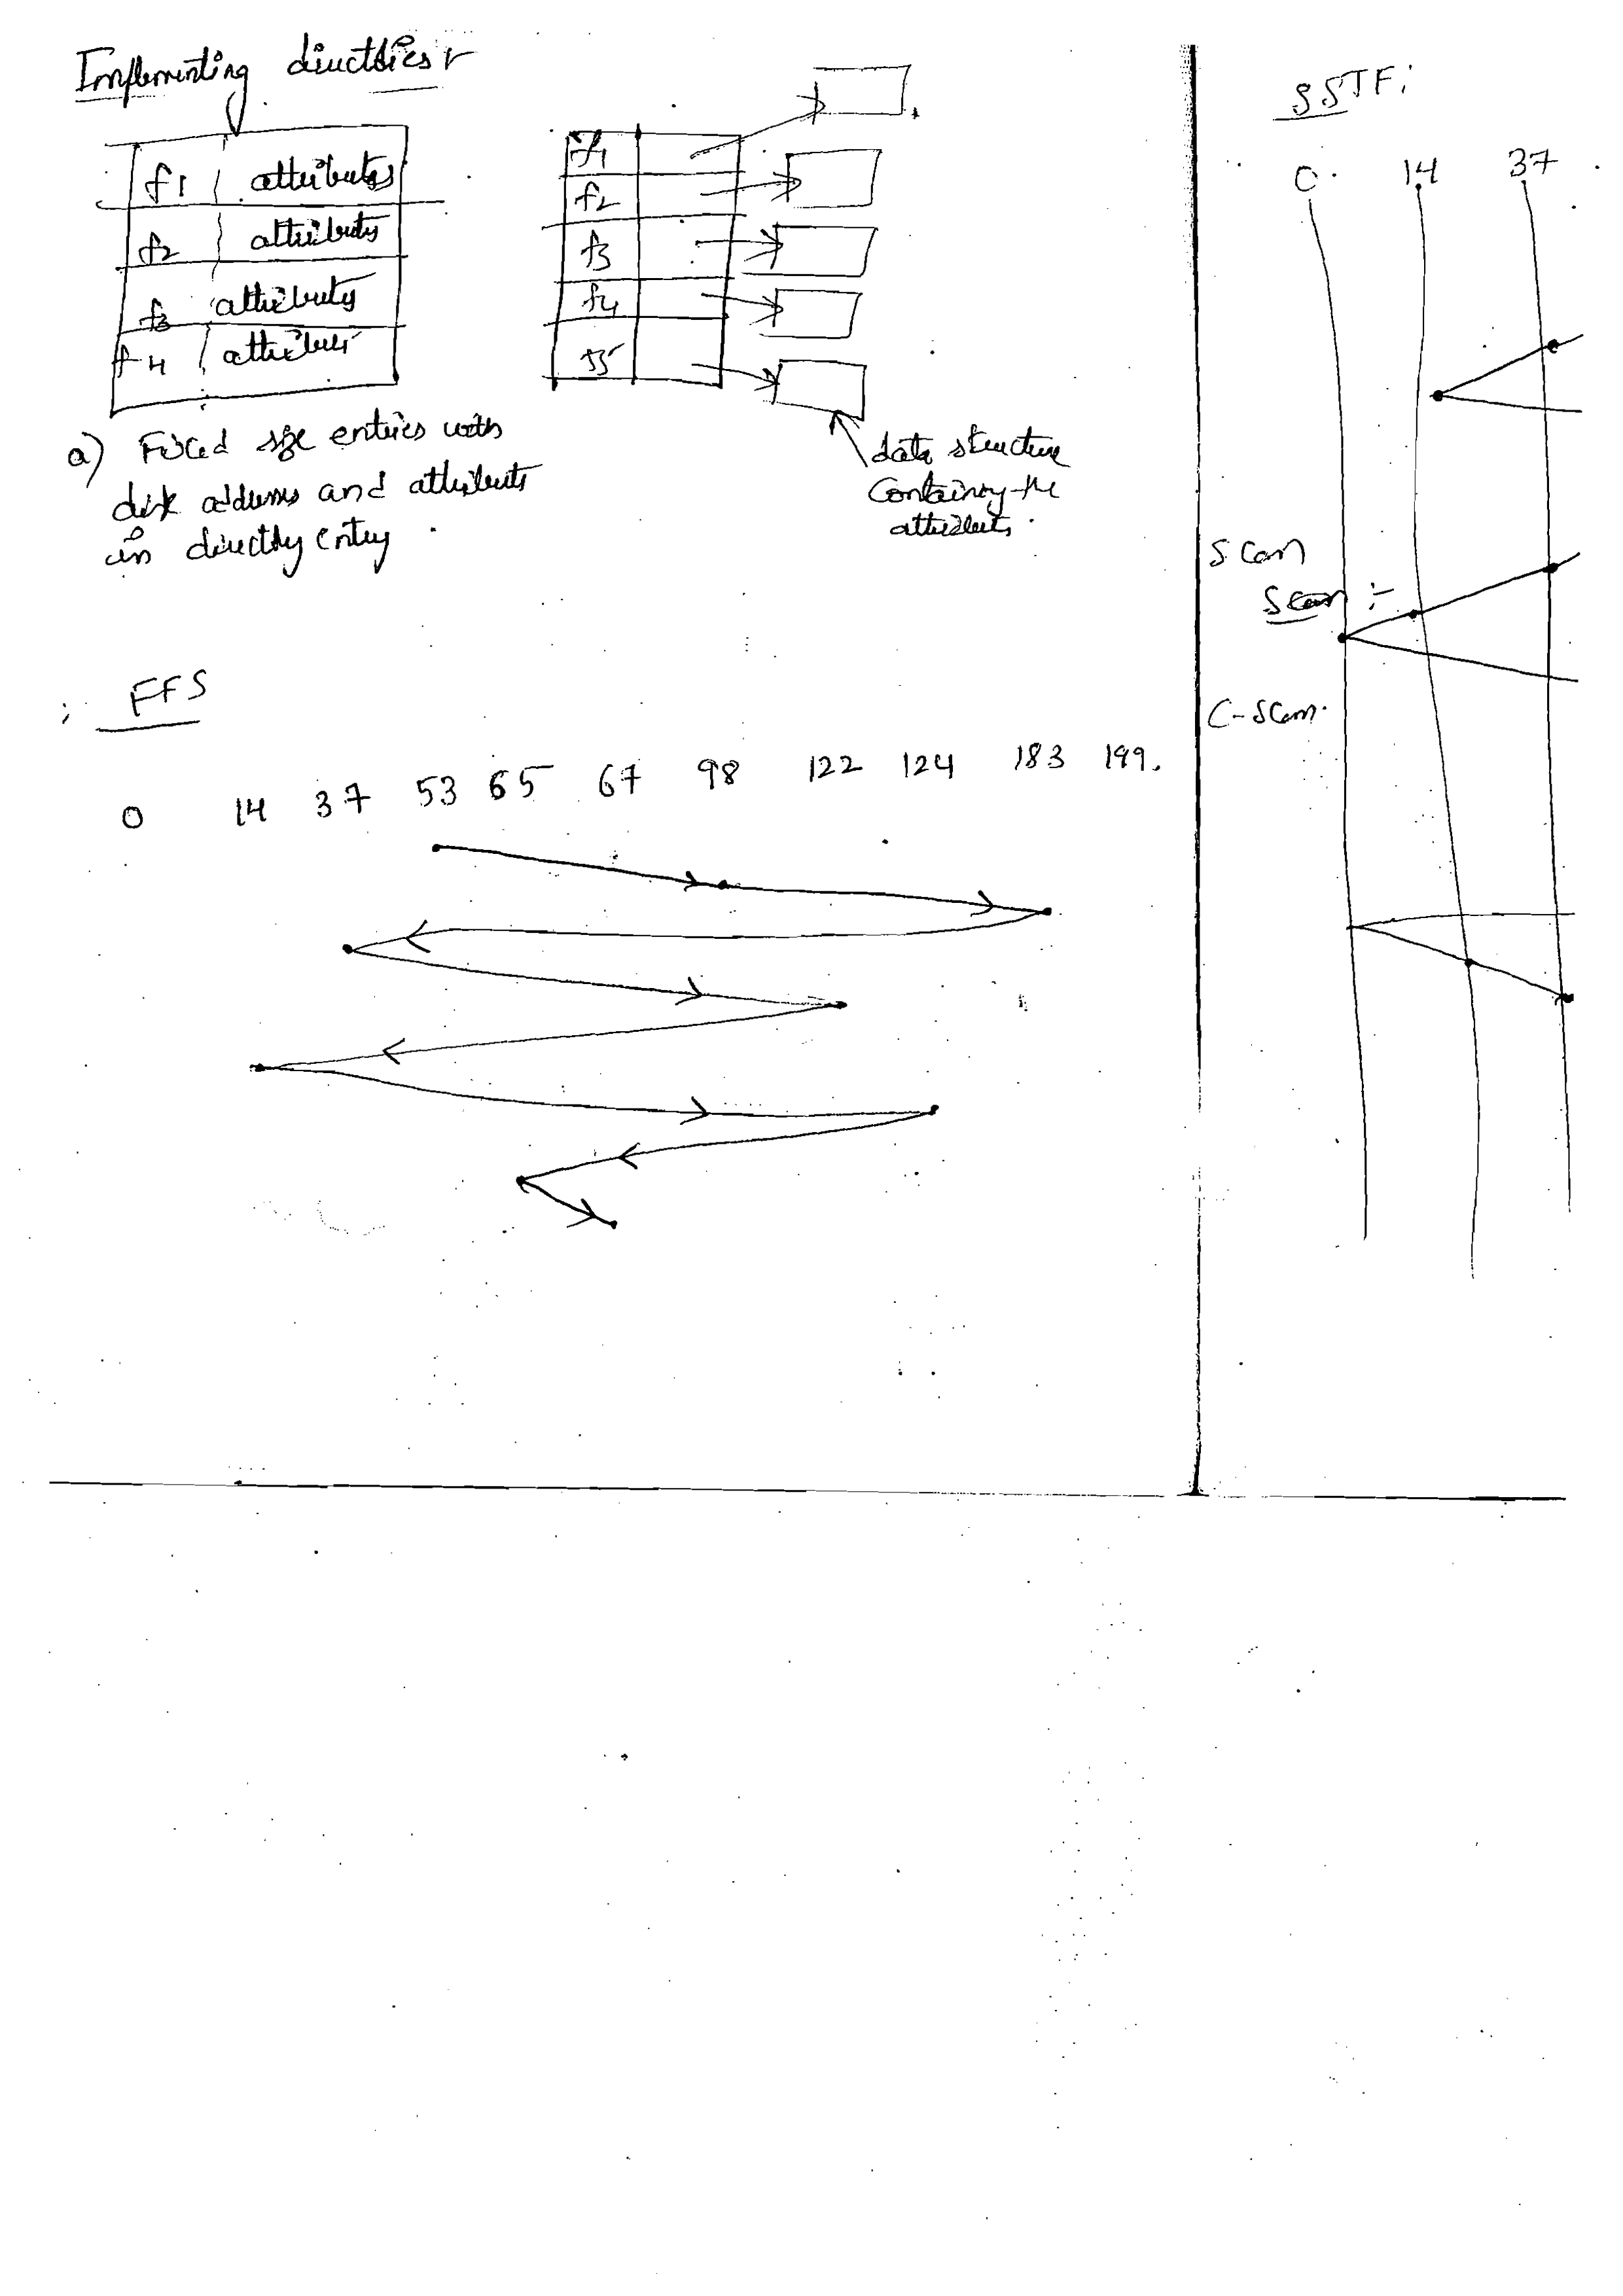 Implementing directories
f1 attributes
f2 attributes
f3 attributes
f4 attributes
f1
f2
f3
f4
f5
a) Fixed size entries with
disk address and attributes
in directory entry.
data structure
Containing the
attributes.
FFS
0 14 37 53 65 67 98 122 124 183 199.
SSTF:
0. 14 37
Scan
Scan :-
C-Scan.